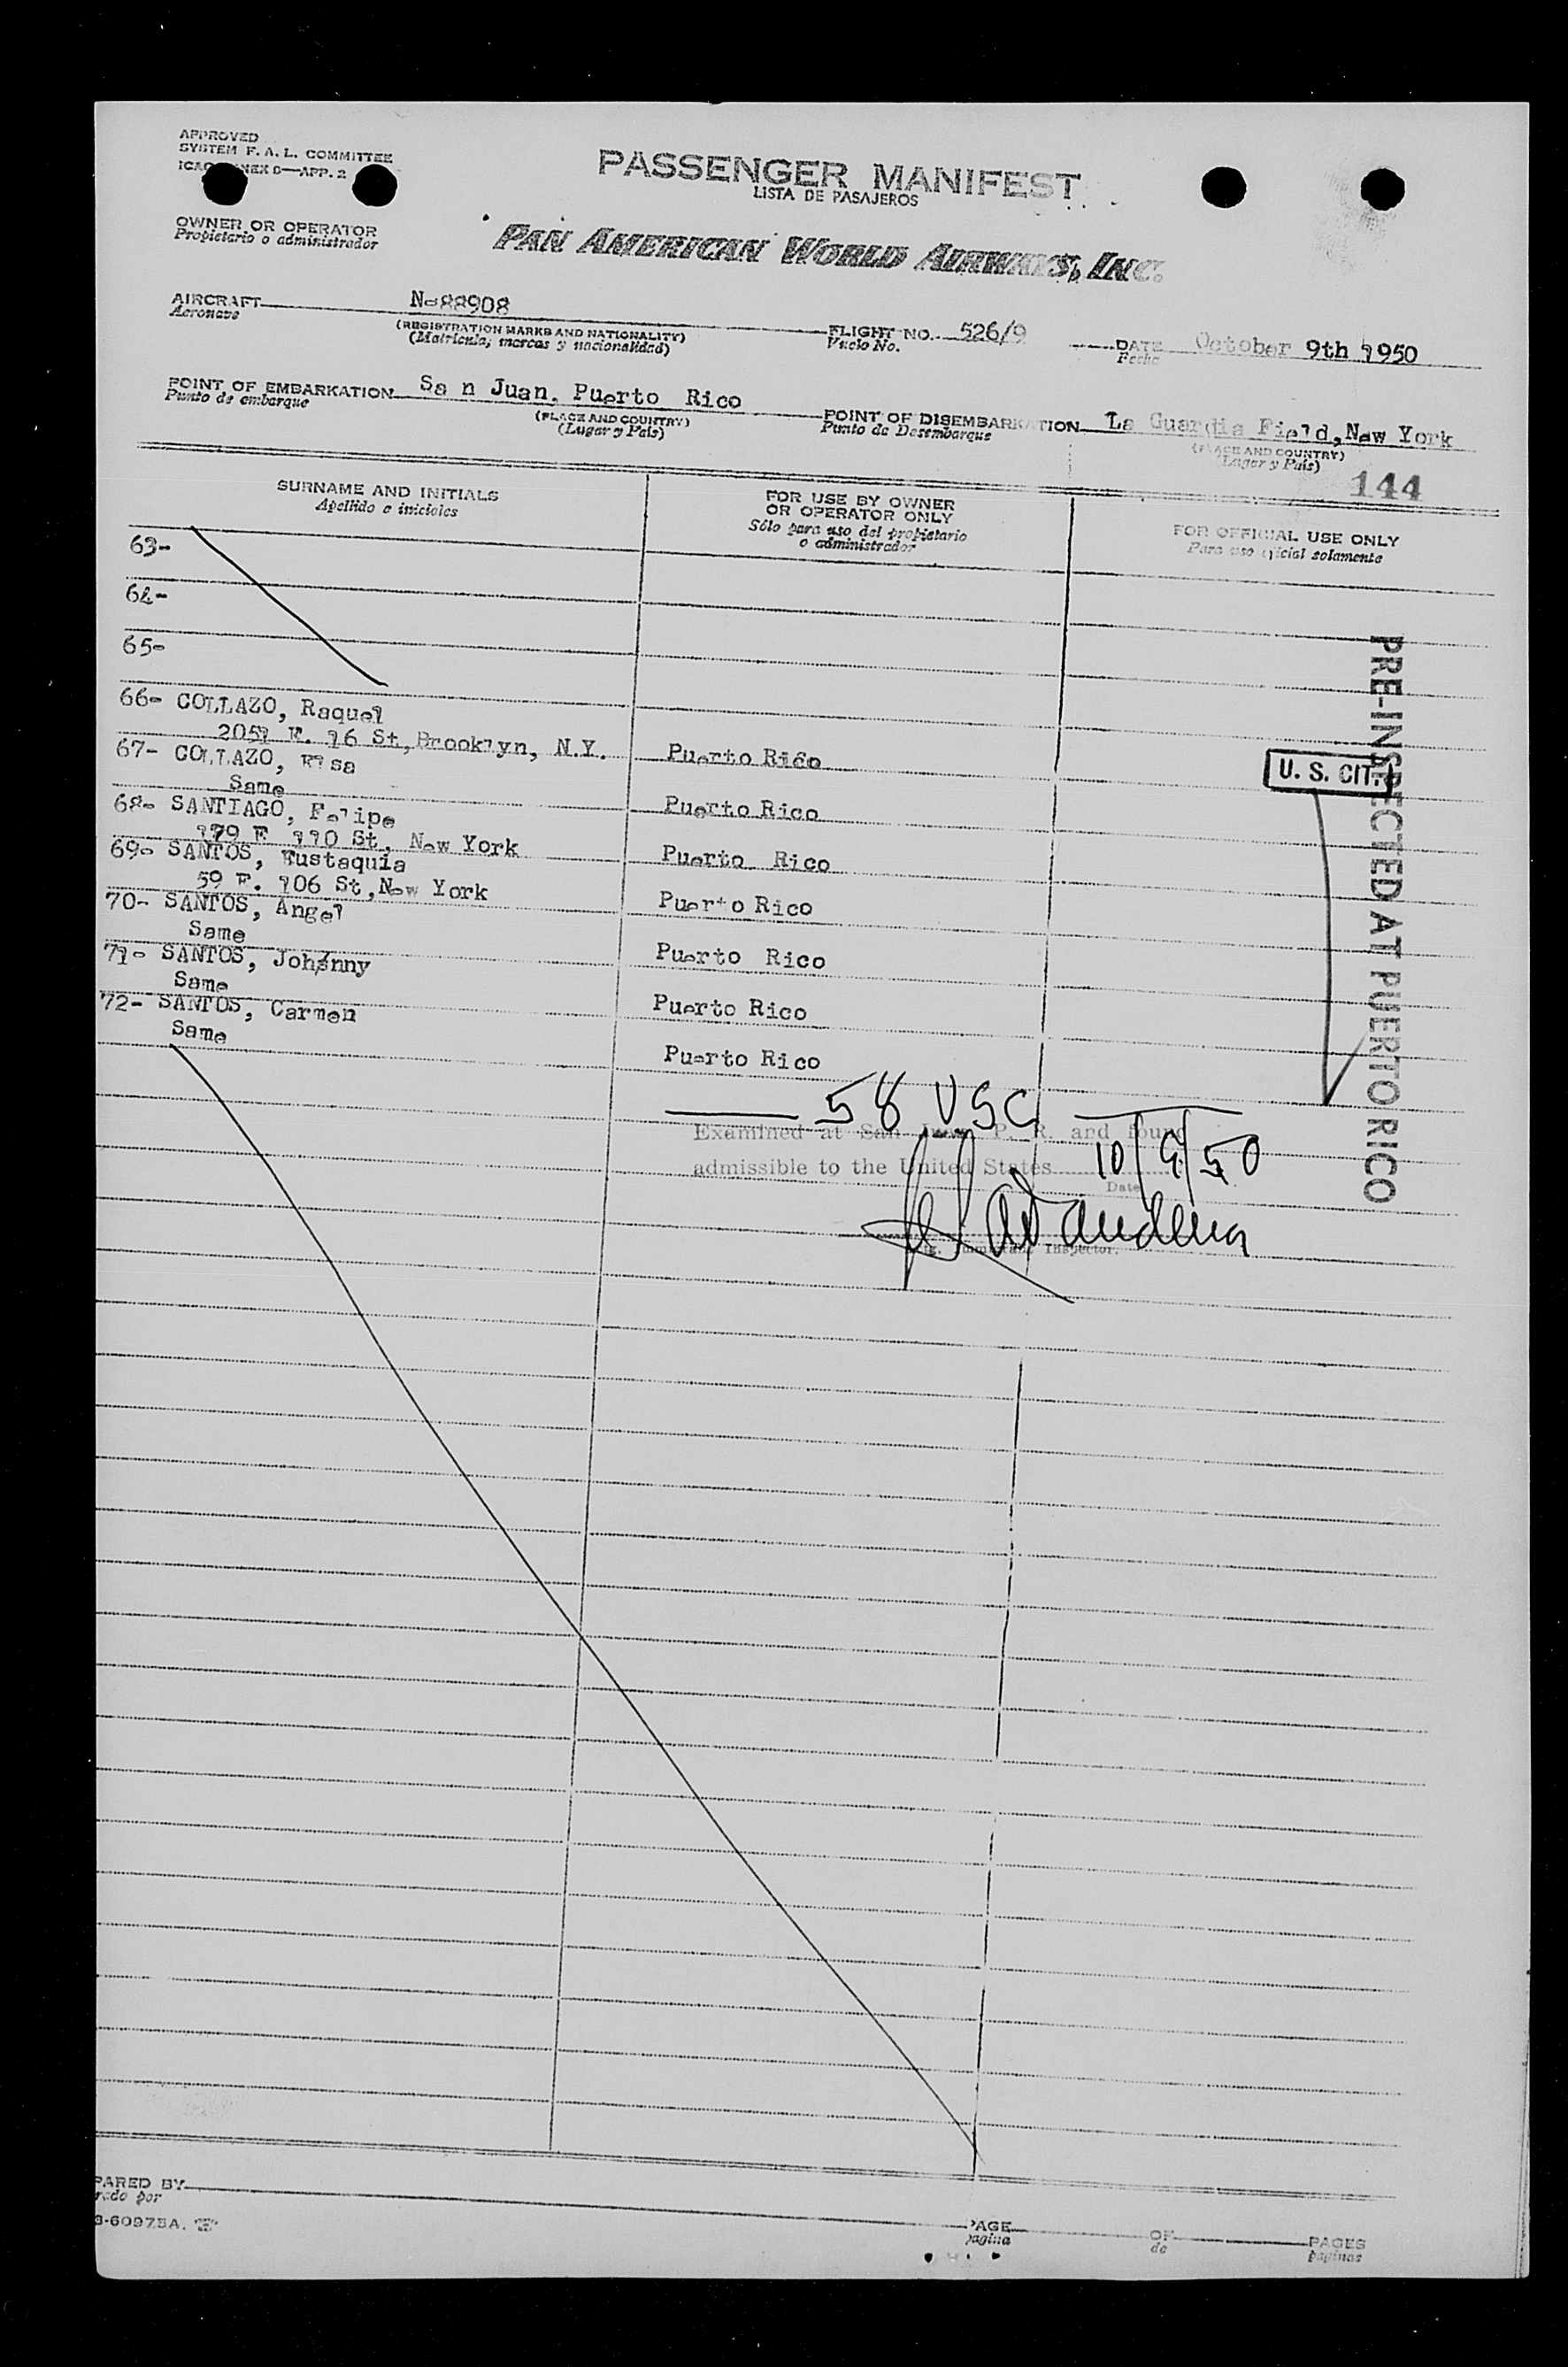 APPROVED
SYSTEM F. A. L. COMMITTEE
ICAO ANNEX 9—APP. 2
PASSENGER MANIFEST
LISTA DE PASAJEROS
OWNER OR OPERATOR
Propietario o administrador
PAN AMERICAN WORLD AIRWAYS, INC.
AIRCRAFT N-88908
Aeronave
(REGISTRATION MARKS AND NATIONALITY)
(Matrícula, marcas y nacionalidad)
FLIGHT NO. 526/9
Vuelo No.
DATE October 9th 1950
Fecha
POINT OF EMBARKATION Sa n Juan, Puerto Rico
Punto de embarque
(PLACE AND COUNTRY)
(Lugar y País)
POINT OF DISEMBARKATION La Guardia Field, New York
Punto de Desembarque
(PLACE AND COUNTRY)
(Lugar y País)
144
SURNAME AND INITIALS
Apellido e iniciales
FOR USE BY OWNER
OR OPERATOR ONLY
Sólo para uso del propietario
o administrador
FOR OFFICIAL USE ONLY
Para uso oficial solamente
63-
64-
65-
66- COLLAZO, Raquel
2051 E. 16 St, Brooklyn, N.Y. Puerto Rico
67- COLLAZO, Elsa
Same Puerto Rico
68- SANTIAGO, Felipe
179 E 110 St, New York Puerto Rico
69- SANTOS, Eustaquia
59 E. 106 St, New York Puerto Rico
70- SANTOS, Angel
Same Puerto Rico
71- SANTOS, Johnny
Same Puerto Rico
72- SANTOS, Carmen
Same Puerto Rico
U. S. CIT.
PRE-INSPECTED AT PUERTO RICO
58 USC
Examined at San Juan, P. R. and found
admissible to the United States 10/9/50
Date
Inspector.
PARED BY
rado por
3-60975A.
PAGE
página
OF
de
PAGES
páginas